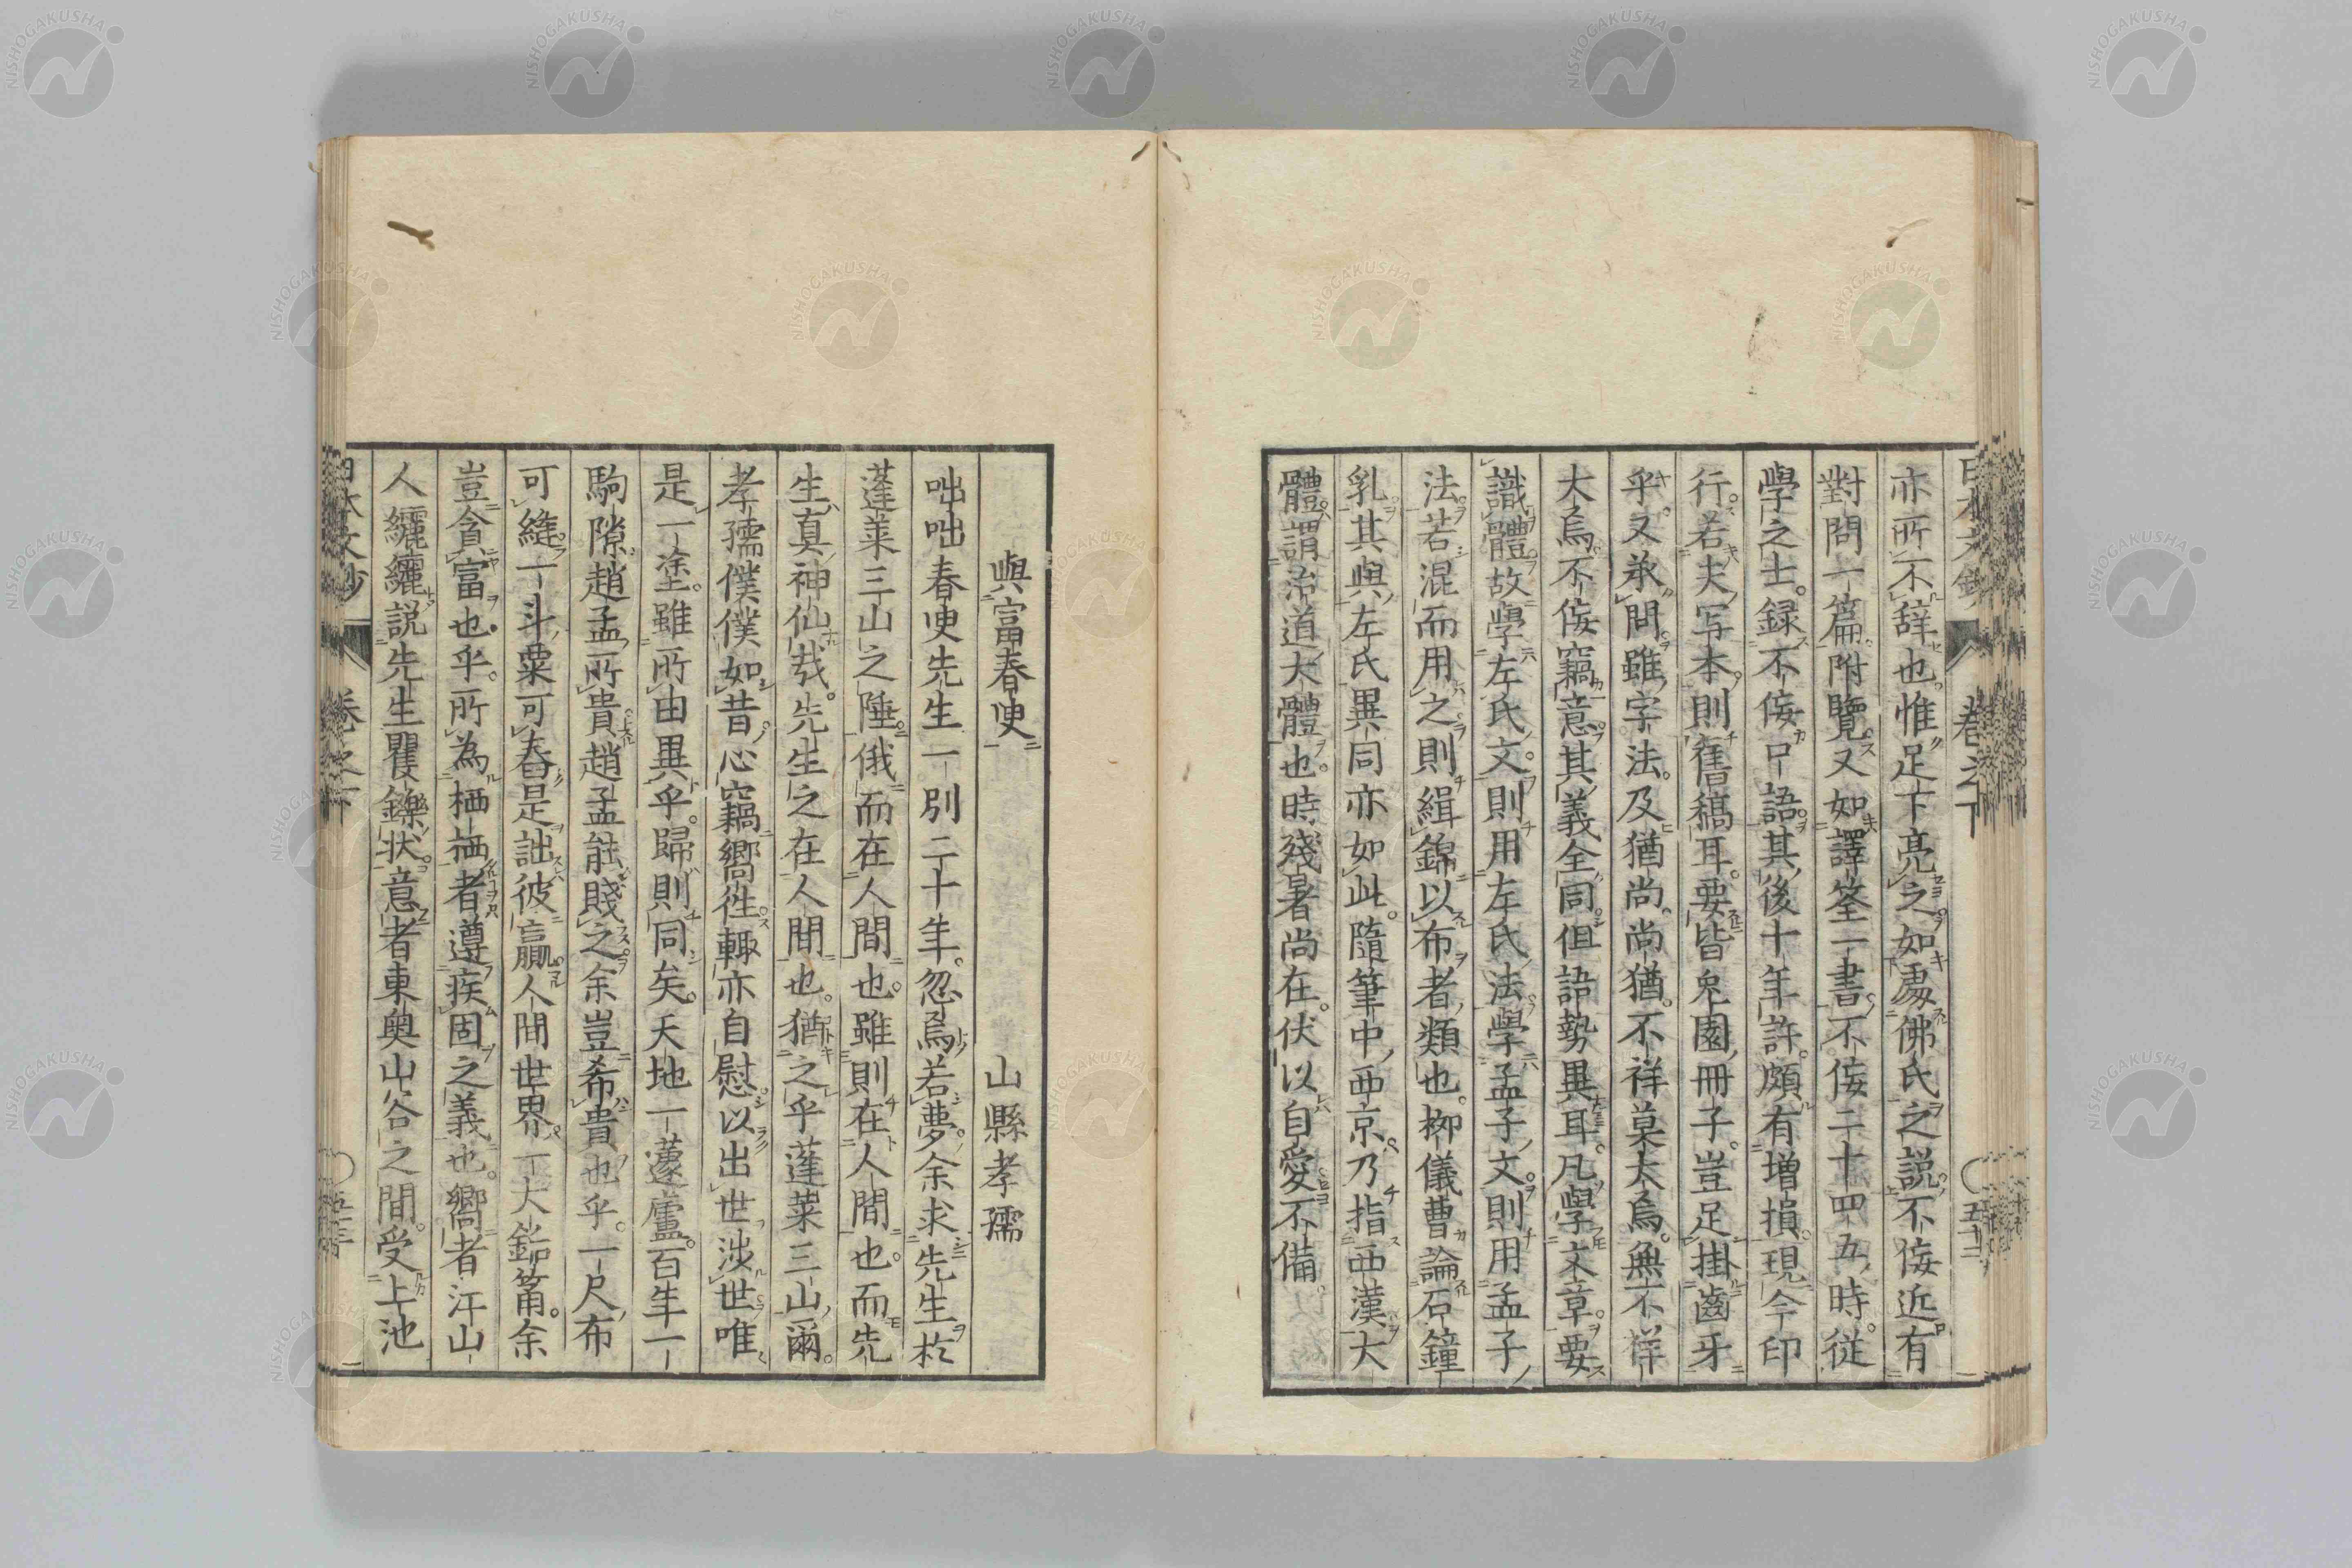 亦所不辞也。惟足下亮之。如處佛氏之説。不侫近有
對問一篇。附覽。又如譯筌一書。不侫二十四五時。従
學之士。録不侫口語。其後十年許。頗有増損。現今印
行。若夫写本。則舊稿耳。要皆兎園冊子。豈足掛齒牙
乎。又承問雖字法。及猶尚。尚猶。不祥莫大焉。無不祥
大焉。不侫竊意。其義全同。但語勢異耳。凡學文章。要
識體。故學左氏文。則用左氏法。學孟子文。則用孟子
法。若混而用之。則緝錦以布者類也。柳儀曹論石鐘
乳。其與左氏異同亦如此。隨筆中。西京。乃指西漢。大
體。謂治道大體也。時殘暑尚在。伏以自愛。不備。
與富春叟
山縣孝孺
咄咄春叟先生一別二十年。忽焉若夢。余求先生於
蓬萊三山之陲。俄而在人間也。雖則在人間也。而先
生真神仙哉。先生之在人間也。猶之乎蓬萊三山爾。
孝孺僕僕如昔。心竊嚮徃。輙亦自慰。以出世渉世。唯
是一塗。雖所由異乎。歸則同矣。天地一蘧廬。百年一
駒隙。趙孟所貴。趙孟能賤之。余豈希貴也乎。一尺布
可縫。一斗粟可舂。是詘彼贏。人間世界。一大錯籥。余
豈貪富也乎。所為栖栖者。遵疾固之義也。嚮者汗山
人纚纚説先生矍鑠状。意者東奥山谷之間。受上池
日本文鈔
巻之下
五十二
NISHOGAKUSHA